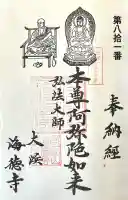 第八拾一番
奉納経
本尊阿弥陀如来
弘法大師
大浜
海徳寺